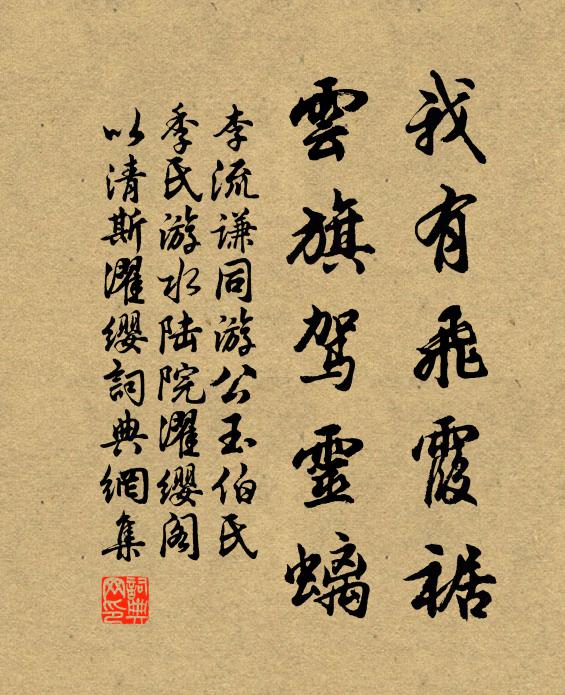 我有飛霞裾
雲旗駕靈螭
李流谦同游公玉伯氏
季氏游水陆院濯缨阁
以清斯濯缨詞典網集
詞典网印